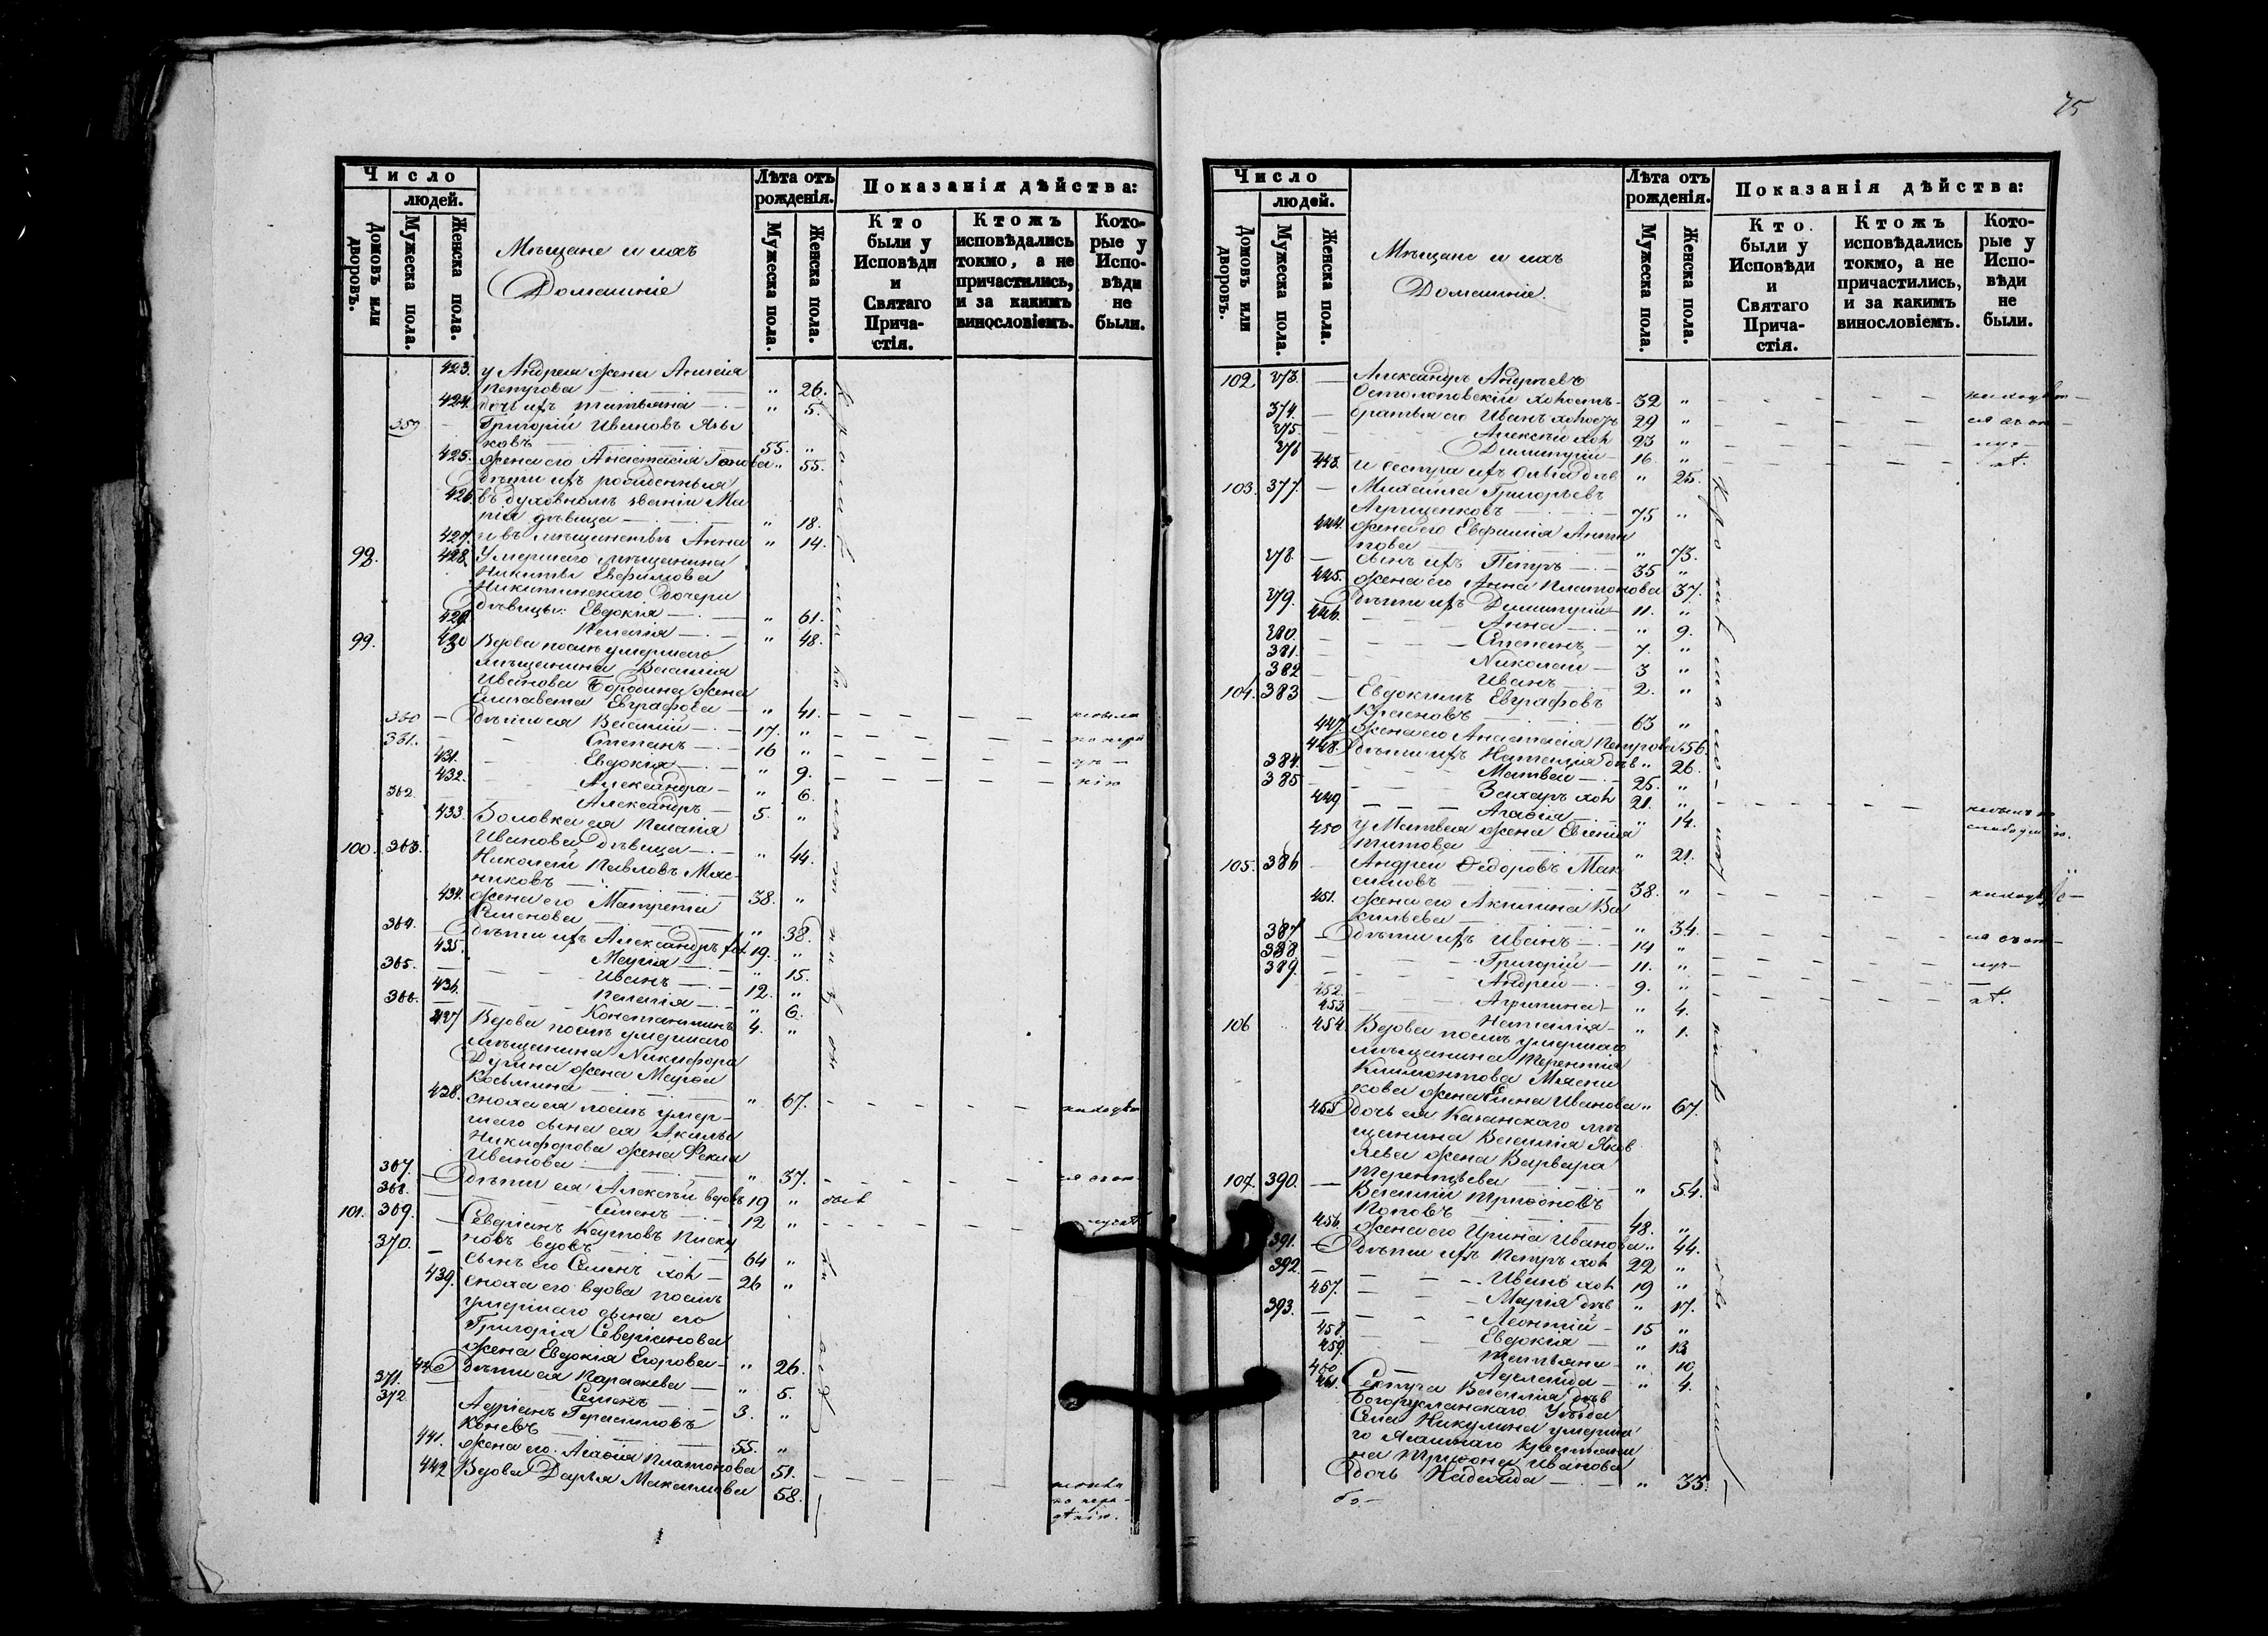 75
Число
людей.
Домовъ или дворовъ.
Мужеска пола.
Женска пола.
Мѣщане и ихъ
Домашніе
Лѣта отъ рожденія.
Мужеска пола.
Женска пола.
Показанія дѣйства:
Кто были у Исповѣди и Святаго Причастія.
Ктожъ исповѣдались токмо, а не причастились, и за какимъ винословіемъ.
Которые у Исповѣди не были.
423. у Андрея жена Анисія
Петрова — " 26.
424. дочь ихъ Татьяна — " 5.
359 Григорій Ивановъ Язы
ковъ — 55. "
425. жена его Анастасія " 55.
Дѣти ихъ рожденныя
426 въ духовномъ званіи Ма
рія дѣвица — " 18.
427. и въ мѣщанствѣ Анна " 14.
98. 428. Умершаго мѣщанина
Никиты Евфимова
Никитинскаго дочери
Дѣвицы: Евдокія — " 61.
429. Пелагія — " 48.
99. 430 Вдова послѣ умершаго
мѣщанина Василія
Иванова Бородина жена
Елисавета Евграфова — " 41.
360 Дѣти ея Василій — 17. "
361. Степанъ — 16 "
431. Евдокія — " 9.
432. Александра — " 6.
362. Александръ — 5. "
433. Золовка ея Пелагія
Иванова дѣвица — " 44.
100. 363. Николай Павловъ Мяс-
никовъ — 38. "
434. жена его Матрена
Семенова — " 38.
364. Дѣти ихъ Александръ 19. "
435. Марія — " 15.
365. Иванъ — 12. "
436. Пелагія — " 6.
366. Константинъ 4. "
437 Вдова послѣ умершаго
мѣщанина Никифора
жена Марѳа
Козьмина — " 67.
438. сноха ея послѣ умер-
шаго сына ея Акилы
Никифорова жена Фекла
Иванова — " 37.
367. Дѣти ея Алексѣй вдовъ 19 "
368. Семенъ — 12 "
101. 369. Северіанъ Карповъ Писку
новъ вдовъ — 64 "
370. сынъ его Семенъ хол — 26 "
439. сноха его вдова послѣ
умершаго сына его
Григорія Северіанова
жена Евдокія Егорова — " 26.
440 Дѣти ея Параскева — " 5.
371. Семенъ — 3. "
372. Адріанъ Герасимовъ
Коневъ — 55. "
441. жена его Агафія Платонова 51.
442 Вдова Дарья Максимова 58.
Число
людей.
Домовъ или дворовъ.
Мужеска пола.
Женска пола.
Мѣщане и ихъ
Домашніе.
Лѣта отъ рожденія.
Мужеска пола.
Женска пола.
Показанія дѣйства:
Кто были у Исповѣди и Святаго Причастія.
Ктожъ исповѣдались токмо, а не причастились, и за какимъ винословіемъ.
Которые у Исповѣди не были.
102 373. Александръ Андреевъ
Остолоповскій холостъ — 32 "
374. братья его Иванъ холостъ 29 "
375. Алексѣй хол 23 "
376 Димитрій — 16. "
443. и сестра ихъ Ольга дѣв " 25.
103. 377. Михаила Григорьевъ
Агрищенковъ — 75 "
444. жена его Евфимія Анти
пова — " 73.
378. сынъ ихъ Петръ — 35 "
445. жена его Анна Платонова 37.
379. Дѣти ихъ Димитрій — 11. "
446. Анна — " 9.
380. Степанъ — 7. "
381. Николай — 3 "
382 Иванъ — 2. "
104. 383 Евдокимъ Евграфовъ
Красновъ — 63 "
447. жена его Анастасія Петрова 56.
448. Дѣти ихъ Наталія дѣв " 26.
384. Матвей — 25. "
385 Захаръ хол 21. "
449 Агафія — " 14.
450 у Матвея жена Евгенія
Титова — " 21.
105. 386 Андрей Ѳедоровъ Мак
симовъ — 38. "
451. жена его Акилина Ва
сильева — " 34.
387 Дѣти ихъ Иванъ — 14 "
388 Григорій — 11. "
389. Андрей — 9. "
452. Агрипина — " 4.
453. Наталія — " 1.
106 454. Вдова послѣ умершаго
мѣщанина Терентія
Климонтова Мясни
кова жена Елена Иванова " 67.
455 дочь ея Казанскаго мѣ
щанина Василія Яков
лева жена Варвара
Терентьева — " 54.
107. 390. Василій Трифоновъ
Поповъ — 48. "
456. жена его Ирина Иванова " 44.
391. Дѣти ихъ Петръ хол 22 "
392. Иванъ хол 19 "
457. Марія дѣв " 17.
393. Леонтій — 15 "
458. Евдокія — " 13
459. Татьяна — " 10
460 Аделаида — " 4.
461. Сестра Василія дѣв
Богорусланскаго Уѣзда
Села Никулина умерша
го крестьяни
на Трифона Иванова
дочь Надежда — " 33.